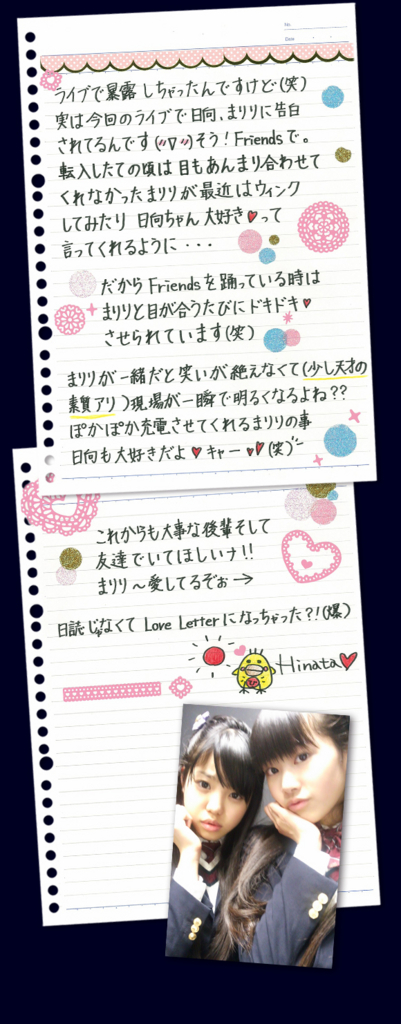 No.
Date
ライブで暴露しちゃったんですけど(笑)
実は今回のライブで日向、まりりに告白
されてるんです(〃∇〃)そう!Friendsで。
転入したての頃は目もあんまり合わせて
くれなかったまりりが最近はウィンク
してみたり 日向ちゃん大好き♥って
言ってくれるように・・・
だからFriendsを踊っている時は
まりりと目が合うたびにドキドキ♥
させられています(笑)
まりりが一緒だと笑いが絶えなくて(少し天才の
素質アリ)現場が一瞬で明るくなるよね??
ぽかぽか充電させてくれるまりりの事
日向も大好きだよ♥キャー♥♥(笑)
これからも大事な後輩そして
友達でいてほしいナ!!
まりり〜愛してるぞぉ→
日誌じゃなくて Love Letterになっちゃった?!(爆)
Hinata♥